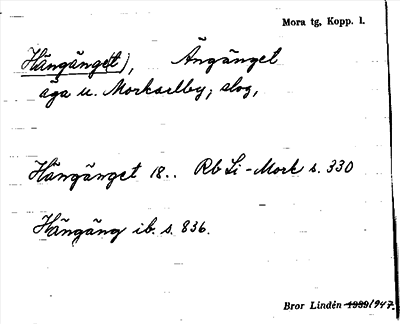 Mora tg, Kopp. l.
Hängänge(t), Ängänget
äga u. Morkarlby, slog,
Hängänget 18.. Rb Li-Mork s. 330
Hängäng ib. s. 836.
Bror Lindén 1939/947.